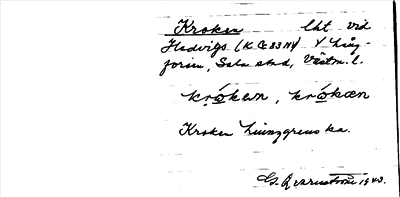 Kroken lht vid
Hedvigs (K Ce 83 NV) V Ling-
forsen, Sala stad, Västm. l.
krókən, krókæn
Kroken Ljunggrenska.
G. Qvarnström 1943.